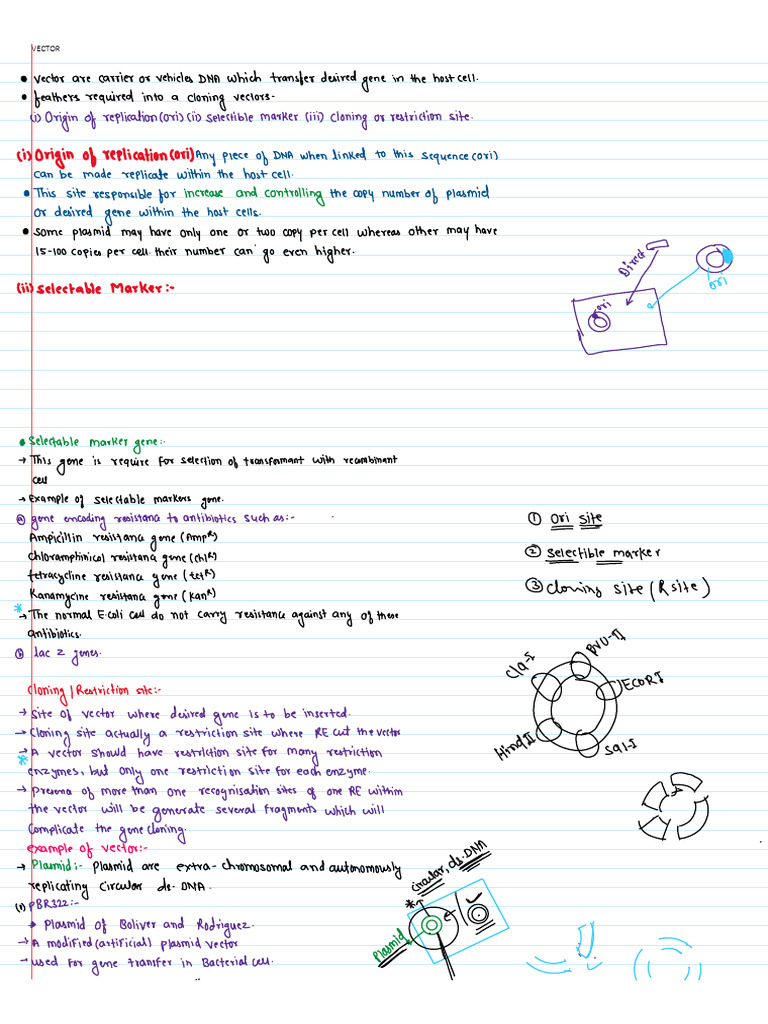 VECTOR
• vector are carrier or vehicles DNA which transfer desired gene in the host cell.
• feathers required into a cloning vectors-
(i) Origin of replication(ori) (ii) selectible marker (iii) cloning or restriction site.
(i) Origin of replication(ori) Any piece of DNA when linked to this sequence (ori)
can be made replicate within the host cell.
• This site responsible for increase and controlling the copy number of plasmid
or desired gene within the host cells.
• Some plasmid may have only one or two copy per cell whereas other may have
15-100 copies per cell. their number can go even higher.
Direct
ori
ori
(ii) Selectable Marker:-
• Selectable marker gene:-
→ This gene is require for selection of transformant with recombinant
cell
→ Example of selectable markers gene.
ⓐ gene encoding resistana to antibiotics such as:-
Ampicillin resistana gene (Ampᴿ)
Chloramphinicol resistana gene (chlᴿ)
tetracycline resistana gene (tetᴿ)
Kanamycine resistana gene (Kanᴿ)
* → The normal E.coli cell do not carry resistance against any of these
antibiotics.
ⓑ lac z genes.
① Ori site
② Selectible marker
③ Cloning site (R site)
Cla-I
PVU-II
ECORI
Sal-I
Hind II
Cloning / Restriction site:-
→ Site of vector where desired gene is to be inserted.
→ Cloning site actually a restriction site where RE cut the vector
* → A vector should have restriction site for many retriction
enzymes, but only one restriction site for each enzyme.
→ Presena of more than one recognisation sites of one RE within
the vector will be generate several fragments which will
complicate the gene cloning.
example of vector:-
→ Plasmid:- Plasmid are extra-chromosomal and autonomously
replicating circular ds-DNA.
(1) PBR322:-
→ Plasmid of Boliver and Rodriguez.
→ A modified (artificial) plasmid vector
→ used for gene transfer in Bacterial cell.
circular, ds.DNA
*
Plasmid